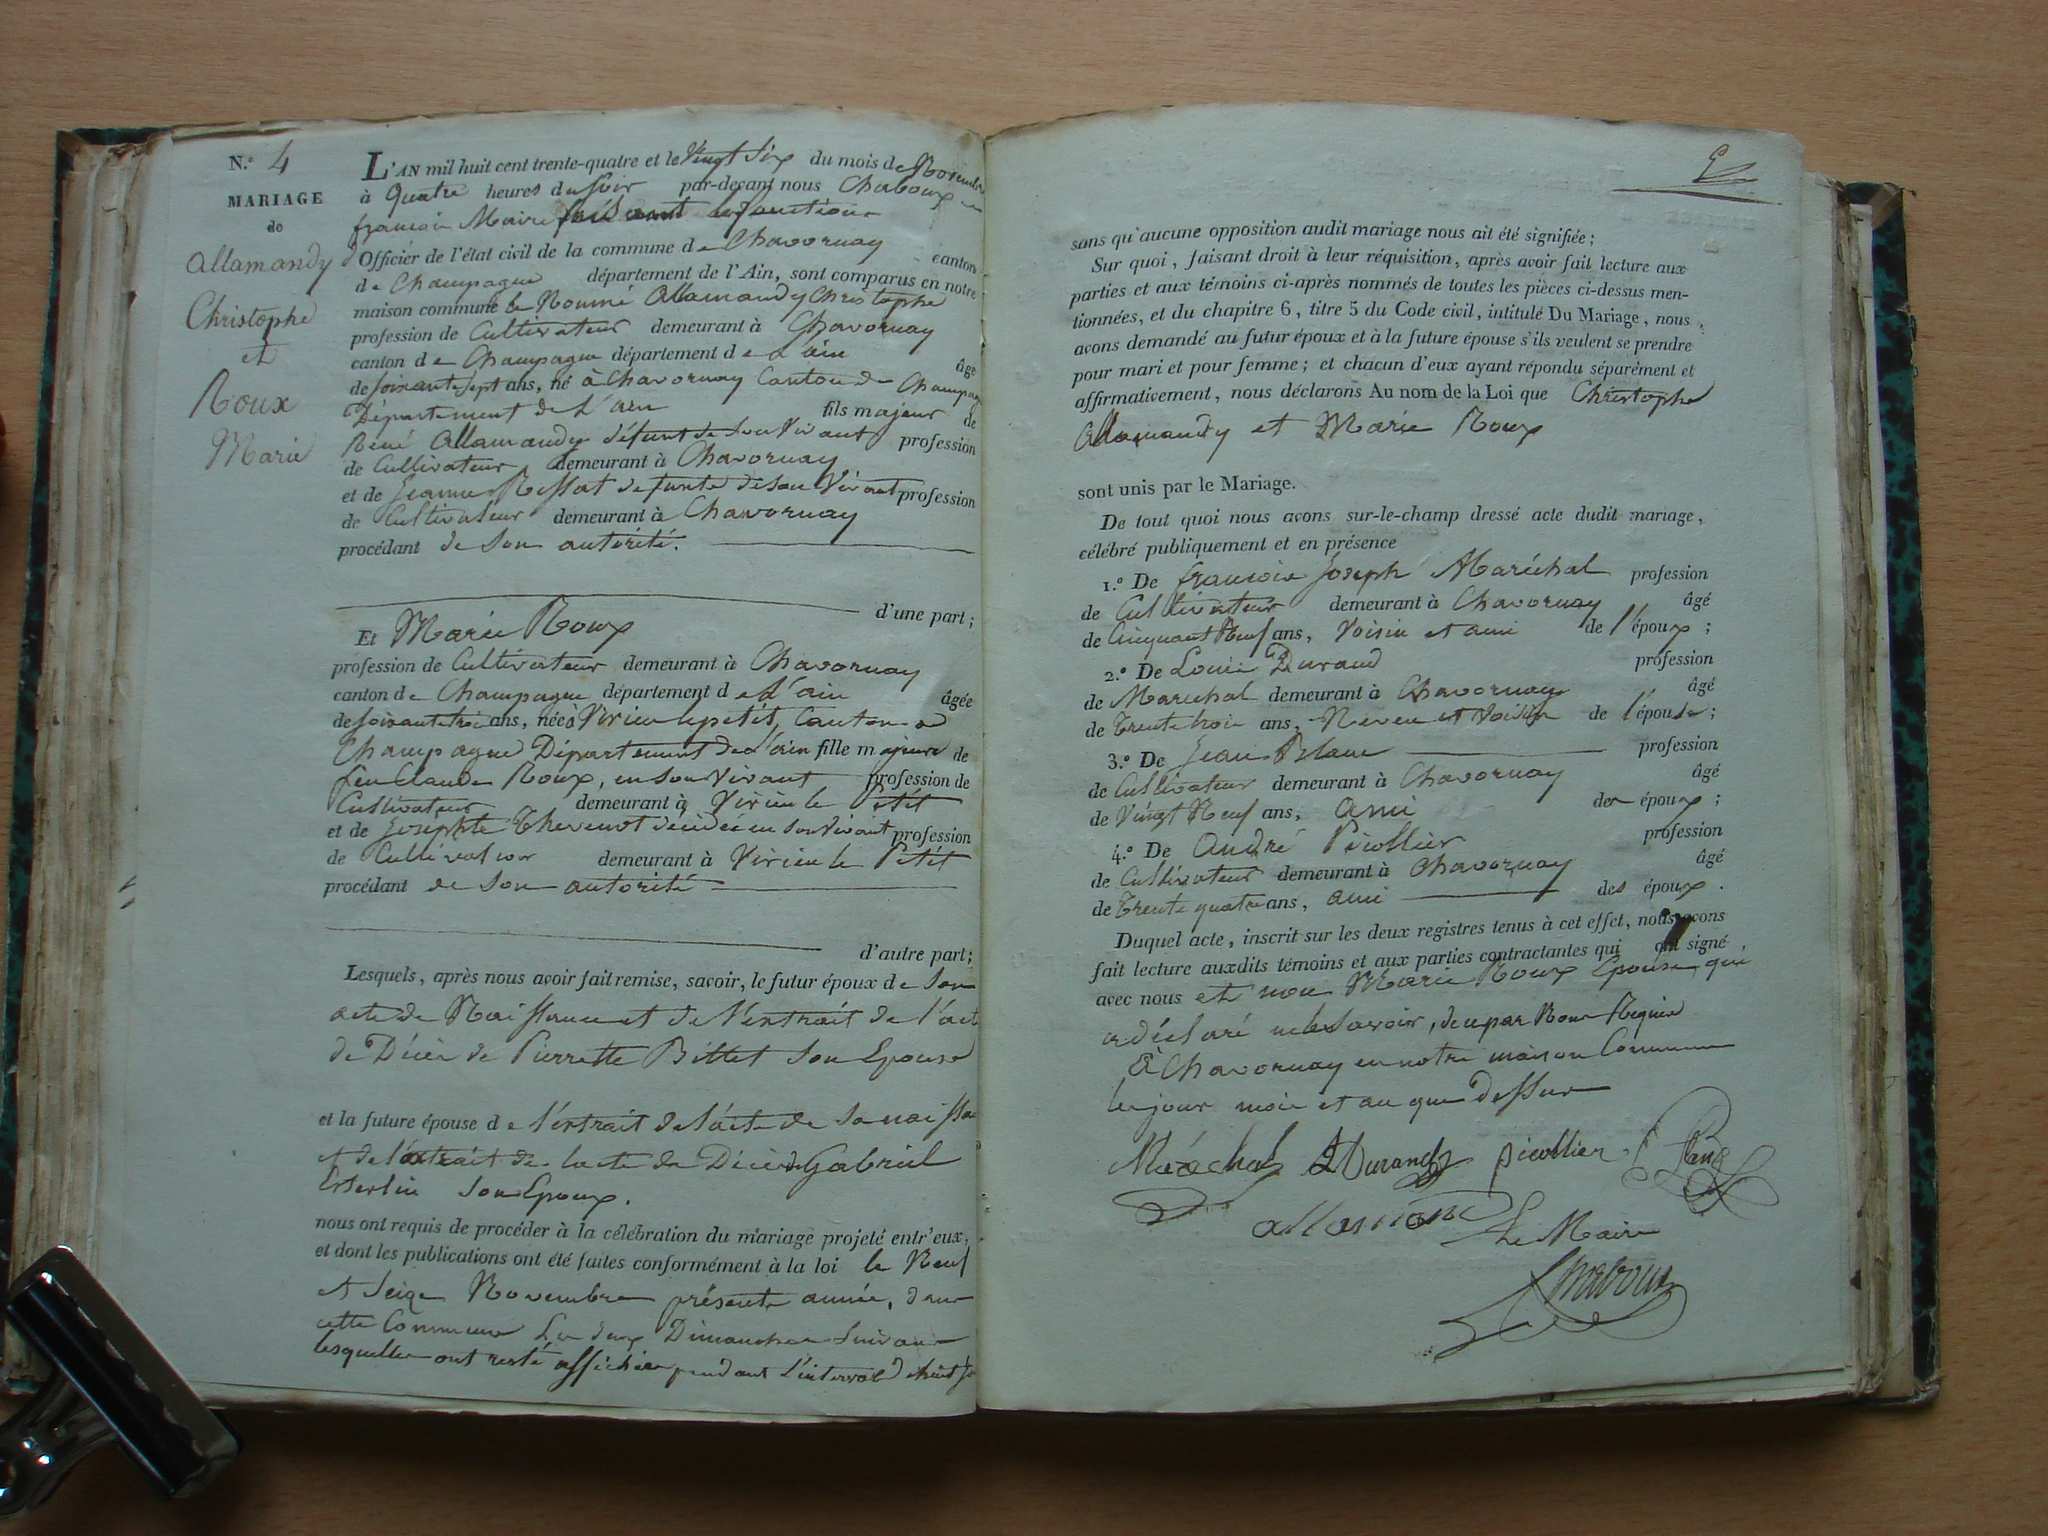 N.º 4
MARIAGE
de
Allamandy
Christophe
et
Roux
Marie
L'AN mil huit cent trente-quatre et le Vingt Six du mois de Novembre
à Quatre heures du soir par-devant nous Chaboux
françois Maire faisant la fonction
d'Officier de l'état civil de la commune de Chavornay canton
de Champagne département de l'Ain, sont comparus en notre
maison commune le Nommé Allamandy Christophe
profession de Cultivateur demeurant à Chavornay
canton de Champagne département de L'ain âgé
de soixante sept ans, né à Chavornay Canton de Champagne
Département de L'ain fils majeur de
René Allamandy défunt de son Vivant profession
de Cultivateur demeurant à Chavornay
et de Jeanne Rossat defunte de son Vivant profession
de Cultivateur demeurant à Chavornay
procédant de son autorité.
d'une part;
Et Marie Roux
profession de Cultivateur demeurant à Chavornay
canton de Champagne département de L'ain âgée
de soixante trois ans, née à Virieu le petit, Canton de
Champagne Département de L'ain fille majeure de
feu Claude Roux, en son vivant profession de
Cultivateur demeurant à Virieu le Petit
et de Josephte Thevenot décédée en son vivant profession
de Cultivateur demeurant à Virieu le Petit
procédant de son autorité
d'autre part;
Lesquels, après nous avoir fait remise, savoir, le futur époux de son
acte de Naissance et de l'extrait de l'acte
de Décès de Pierrette Billet son Epouse
et la future épouse de l'extrait de l'acte de sa naissa
et de l'extrait de lacte de Décès de Gabriel
son Epoux.
nous ont requis de procéder à la célébration du mariage projeté entr'eux,
et dont les publications ont été faites conformément à la loi le Neuf
et Seize Novembre présente année, dans
cette Commune Les deux Dimanches Suivans
lesquelles ont resté affichées pendant l'interval d'huit jo
sans qu'aucune opposition audit mariage nous ait été signifiée;
Sur quoi, faisant droit à leur réquisition, après avoir fait lecture aux
parties et aux témoins ci-après nommés de toutes les pièces ci-dessus men-
tionnées, et du chapitre 6, titre 5 du Code civil, intitulé Du Mariage, nous
avons demandé au futur époux et à la future épouse s'ils veulent se prendre
pour mari et pour femme; et chacun d'eux ayant répondu séparément et
affirmativement, nous déclarons Au nom de la Loi que Christophe
Allamandy et Marie Roux
sont unis par le Mariage.
De tout quoi nous avons sur-le-champ dressé acte dudit mariage,
célébré publiquement et en présence
1.º De françois Joseph Maréchal profession
de Cultivateur demeurant à Chavornay âgé
de Cinquant Neuf ans, Voisin et ami de l'époux;
2.º De Louis Durand profession
de Marechal demeurant à Chavornay âgé
de Trente trois ans, Neveu et Voisin de l'épouse;
3.º De Jean Blanc profession
de Cultivateur demeurant à Chavornay âgé
de Vingt Neuf ans, ami des époux;
4.º De André Picollier profession
de Cultivateur demeurant à Chavornay âgé
de Trente quatre ans, ami des époux.
Duquel acte, inscrit sur les deux registres tenus à cet effet, nous avons
fait lecture auxdits témoins et aux parties contractantes qui ont signé
avec nous et non Marie Roux Epouse qui
a déclaré ne le savoir, de ce par Nous Requise
à Chavornay en notre maison Commune
les jour mois et an que dessus
Maréchal L Durand picollier J Blanc
allamand Le Maire
Chaboux